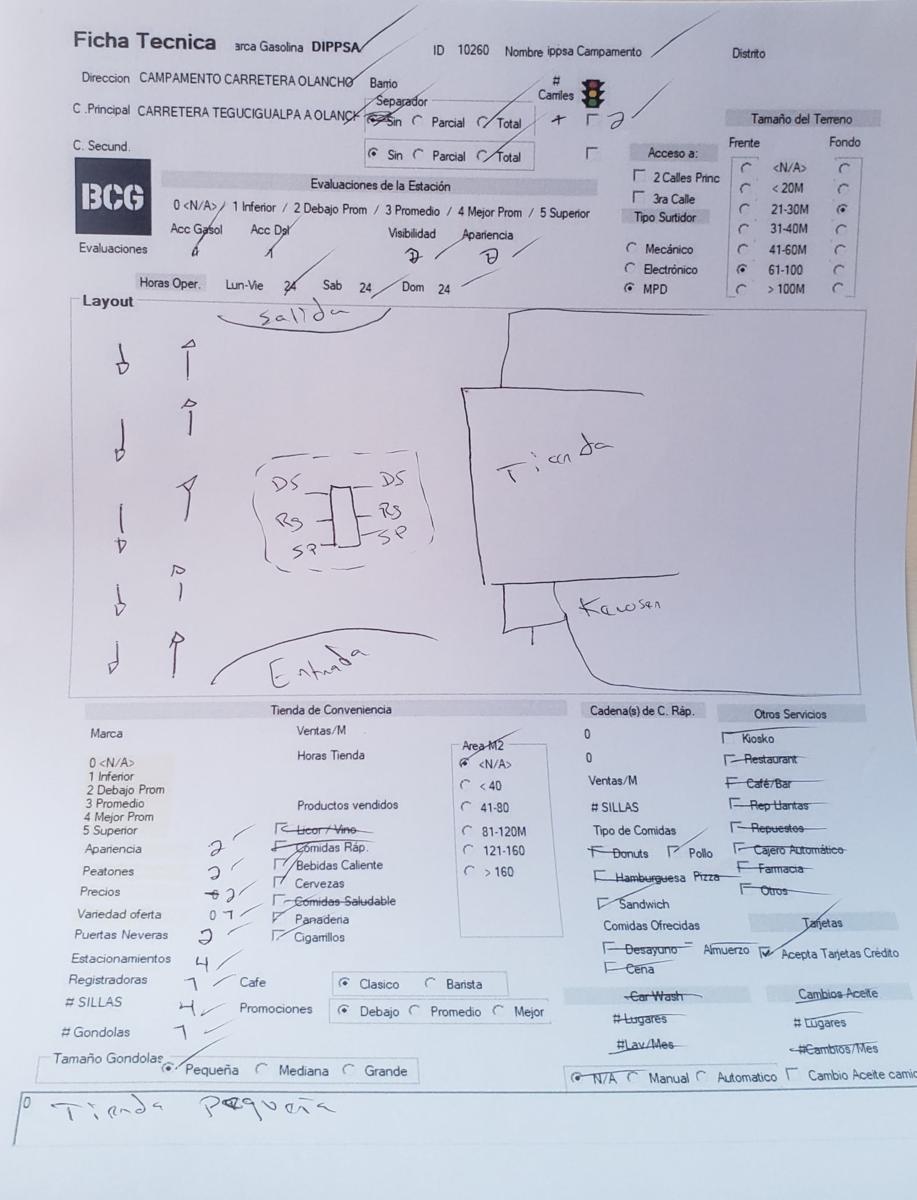 Ficha Tecnica arca Gasolina DIPPSA ID 10260 Nombre ippsa Campamento Distrito
Direccion CAMPAMENTO CARRETERA OLANCHO Barrio # Carriles
C .Principal CARRETERA TEGUCIGUALPA A OLANCH Separador Sin Parcial Total 2
C. Secund. Sin Parcial Total
Tamaño del Terreno
Frente Fondo
<N/A>
< 20M
21-30M
31-40M
41-60M
61-100
> 100M
Acceso a:
2 Calles Princ
3ra Calle
Tipo Surtidor
Mecánico
Electrónico
MPD
BCG
Evaluaciones
Evaluaciones de la Estación
0 <N/A> / 1 Inferior / 2 Debajo Prom / 3 Promedio / 4 Mejor Prom / 5 Superior
Acc Gasol Acc Dsl Visibilidad Apariencia
2 2
Horas Oper. Lun-Vie 24 Sab 24 Dom 24
Layout
Salida
Tienda
DS DS
Rg Rg
SP SP
Entrada
Tienda de Conveniencia
Marca
0 <N/A>
1 Inferior
2 Debajo Prom
3 Promedio
4 Mejor Prom
5 Superior
Apariencia 2
Peatones 2
Precios 2
Variedad oferta 0 1
Puertas Neveras 2
Estacionamientos 4
Registradoras 1
# SILLAS 4
# Gondolas 1
Ventas/M
Horas Tienda
Productos vendidos
Licor / Vino
Comidas Ráp.
Bebidas Caliente
Cervezas
Comidas Saludable
Panaderia
Cigarrillos
Area M2
<N/A>
< 40
41-80
81-120M
121-160
> 160
Cafe Clasico Barista
Promociones Debajo Promedio Mejor
Tamaño Gondolas Pequeña Mediana Grande
Cadena(s) de C. Ráp.
0
0
Ventas/M
# SILLAS
Tipo de Comidas
Donuts Pollo
Hamburguesa Pizza
Sandwich
Comidas Ofrecidas
Desayuno Almuerzo
Cena
Otros Servicios
Kiosko
Restaurant
Café/Bar
Rep Llantas
Repuestos
Cajero Automático
Farmacia
Otros
Tarjetas
Acepta Tarjetas Crédito
Car Wash
# Lugares
#Lav/Mes
Cambios Aceite
# Lugares
#Cambios/Mes
N/A Manual Automatico Cambio Aceite camic
0 Tienda Pequeña